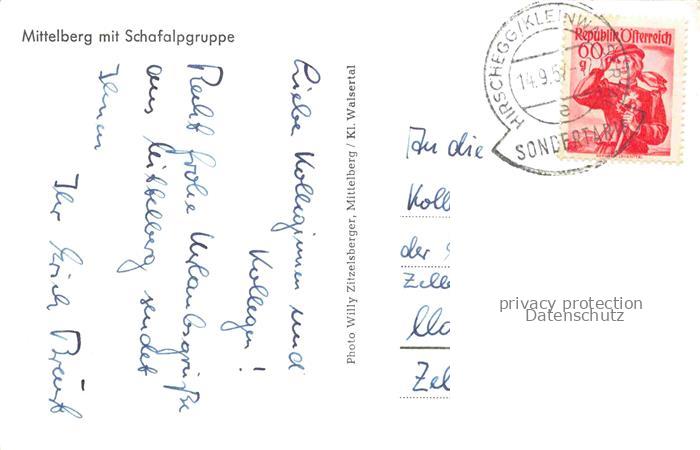 Mittelberg mit Schafalpgruppe
Liebe Kolleginnen und
Kollegen!
Recht frohe Urlaubsgrüße
aus Mittelberg sendet
Ihnen
Ihr Erich
Photo Willy Zitzelsberger, Mittelberg / Kl. Walsertal
An die
Koll
der
Zell
Zel
privacy protection
Datenschutz
Republik Österreich
60
g
HIRSCHEGG (KLEINWALSERTAL)
14.9.5
a
SONDERTARIF